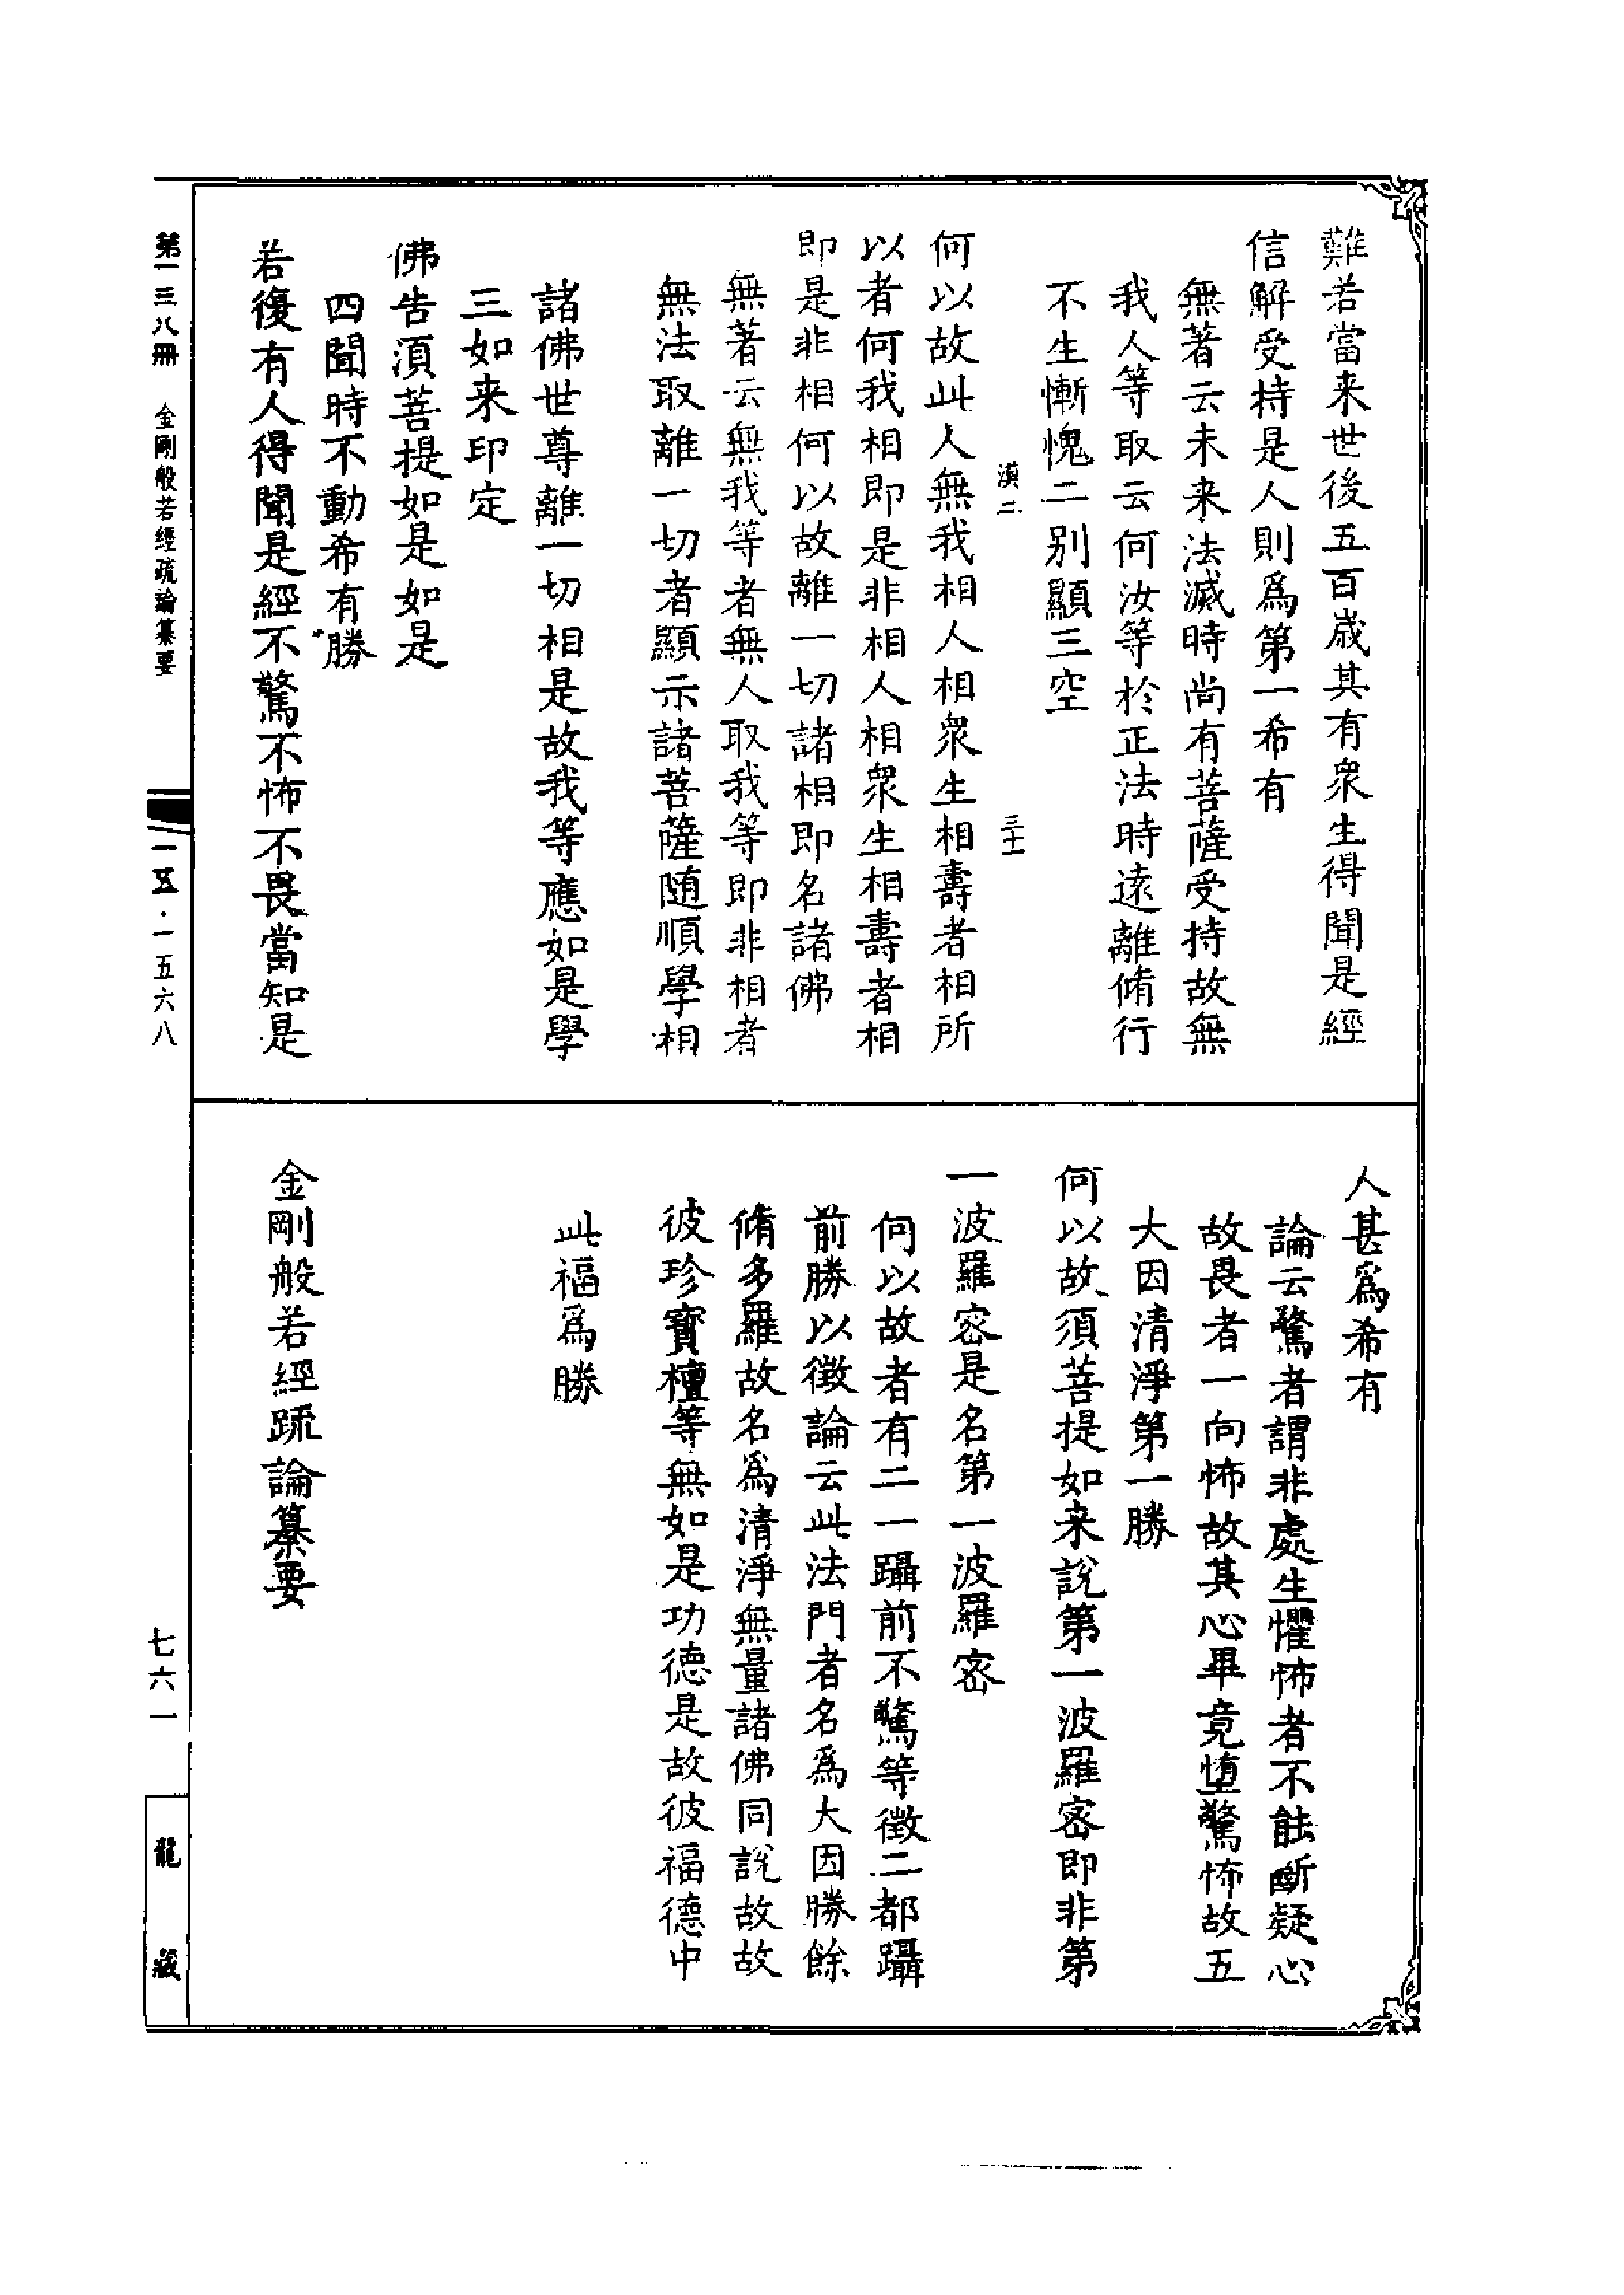 難若當来世後五百歲其有衆生得聞是經
信解受持是人則爲第一希有
無著云未来法滅時尚有菩薩受持故無
我人等取云何汝等於正法時遠離脩行
不生慚愧二别顯三空
漠二 三十一
何以故此人無我相人相衆生相壽者相所
以者何我相即是非相人相衆生相壽者相
即是非相何以故離一切諸相即名諸佛
無著云無我等者無人取我等即非相者
無法取離一切者顯示諸菩薩随順學相
諸佛世尊離一切相是故我等應如是學
三如来印定
佛告湏菩提如是如是
四聞時不動希有勝
若復有人得聞是經不驚不怖不畏當知是
人甚爲希有
論云驚者謂非處生懼怖者不能斷疑心
故畏者一向怖故其心畢竟堕驚怖故五
大因清淨第一勝
何以故須菩提如来說第一波羅密即非第
一波羅密是名第一波羅密
何以故者有二一躡前不驚等徵二都躡
前勝以徵論云此法門者名爲大因勝餘
脩多羅故名爲清淨無量諸佛同說故故
彼珍寶檀等無如是功德是故彼福德中
此福爲勝
金剛般若經疏論纂要
第一三八冊 金剛般若經疏論纂要 一五·一五六八 七六一 龍藏